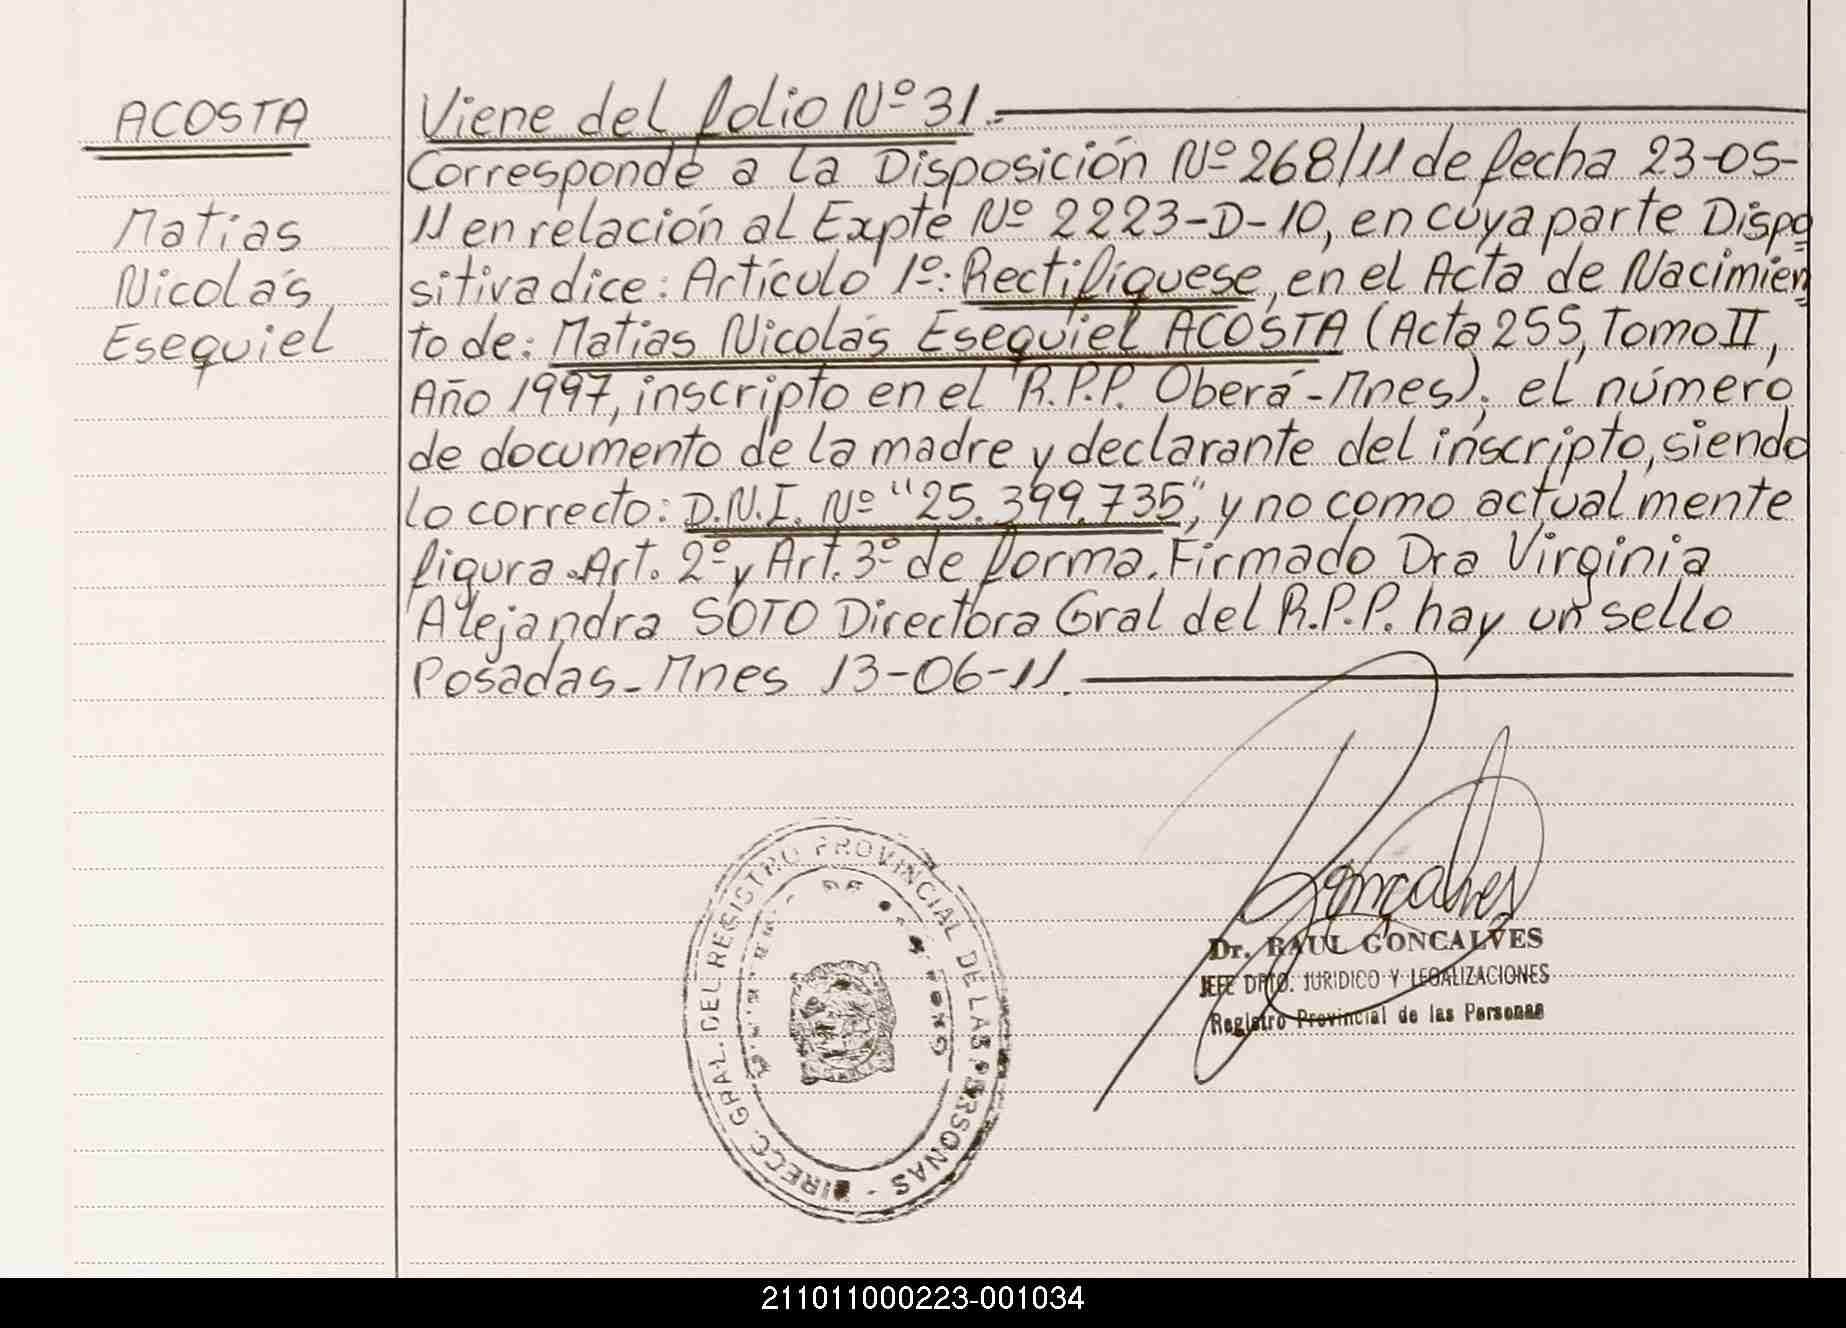 ACOSTA
Matías
Nicolás
Esequiel
Viene del folio Nº 31.-
Corresponde a la Disposición Nº 268/11 de fecha 23-05-
11 en relación al Expte Nº 2223-D-10, en cuya parte Dispo
sitiva dice: Artículo 1º: Rectifíquese, en el Acta de Nacimien
to de: Matías Nicolás Esequiel ACOSTA (Acta 255, Tomo II,
Año 1997, inscripto en el R.P.P. Oberá-Mnes); el número
de documento de la madre y declarante del inscripto, siendo
lo correcto: D.N.I. Nº "25.399.735", y no como actualmente
figura. Art. 2º y Art. 3º de forma. Firmado Dra Virginia
Alejandra SOTO Directora Gral del R.P.P. hay un sello
Posadas-Mnes 13-06-11.
DIRECC. GRAL. DEL REGISTRO PROVINCIAL DE LAS PERSONAS -
Goncalves
Dr. RAUL GONCALVES
JEFE DPTO. JURIDICO Y LEGALIZACIONES
Registro Provincial de las Personas
211011000223-001034